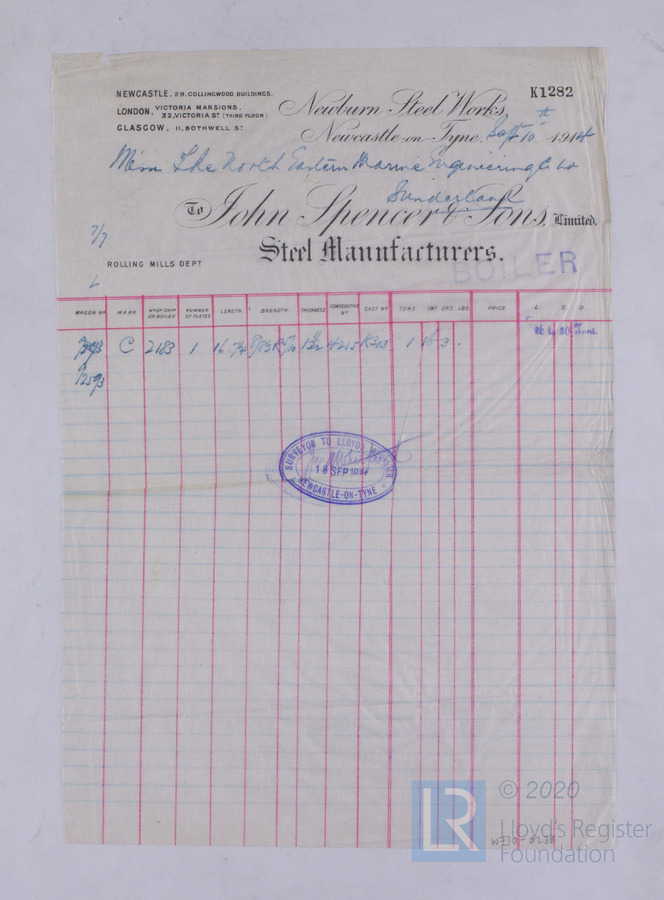 NEWCASTLE. 29. COLLINGWOOD BUILDINGS.
LONDON. VICTORIA MANSIONS.
32, VICTORIA ST (THIRD FLOOR)
GLASGOW. 11, BOTHWELL ST
K1282
Newburn Steel Works,
Newcastle-on-Tyne, Sept 10th 1914
The North Eastern Marine Engineering Co Ld
Sunderland
To John Spencer & Sons, Limited.
Steel Manufacturers.
ROLLING MILLS DEPT
BOILER
WAGON No MARK No OF SHIP OR BOILER NUMBER OF PLATES LENGTH BREADTH. THICKNESS CONSECUTIVE No CAST No TONS CWT QRS LBS PRICE £. S. D.
26 to 30 Tons
C 2183 1 4215 K303 1 16 3 .
SURVEYOR TO LLOYDS REGISTER
SEP
NEWCASTLE-ON-TYNE
LR © 2020
Lloyd's Register
Foundation